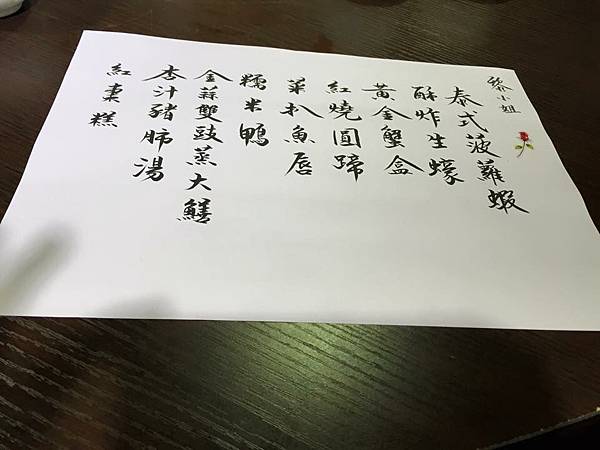 黎小姐
泰式菠蘿蝦
酥炸生蠔
黃金蟹盒
紅燒圓蹄
菜扒魚唇
糯米鴨
金蒜雙豉蒸大鱔
杏汁豬肺湯
紅棗糕